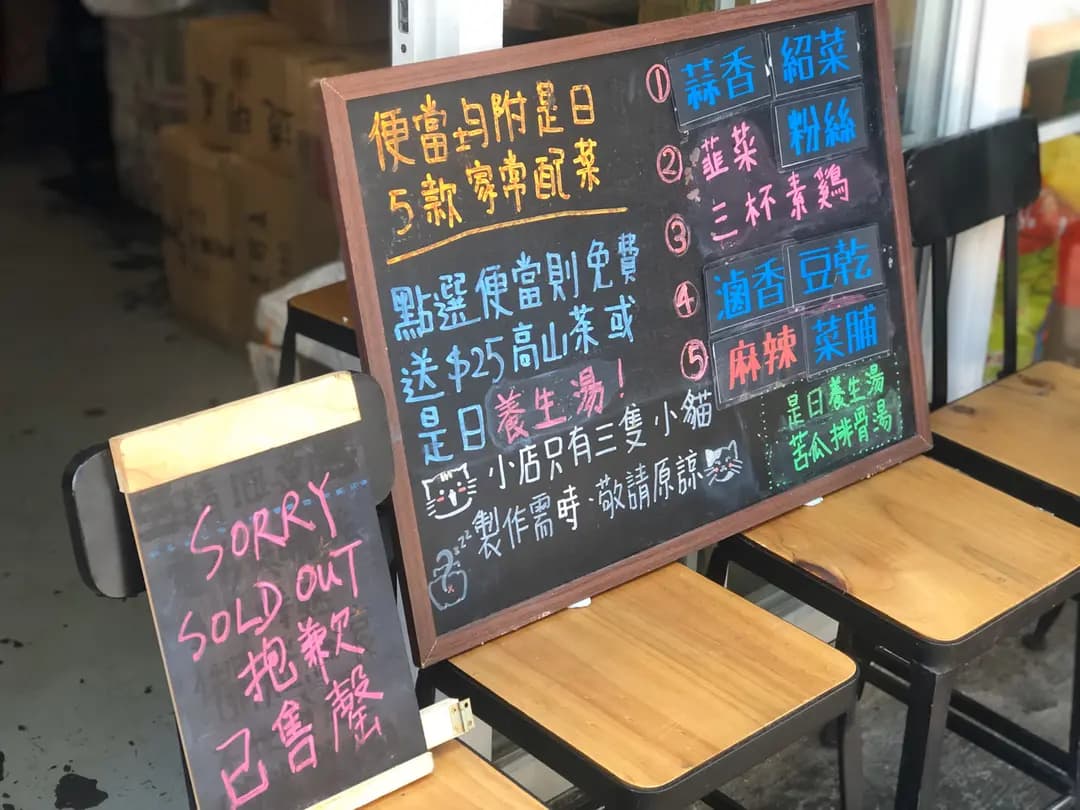 便當均附是日
5款家常配菜
點選便當則免費
送$25高山茶或
是日養生湯!
小店只有三隻小貓
製作需時·敬請原諒
zzz
① 蒜香 紹菜
粉絲
② 韮菜
③ 三杯素鷄
④ 滷香豆乾
⑤ 麻辣菜脯
是日養生湯
苦瓜排骨湯
SORRY
SOLD OUT
抱歉
已售罄